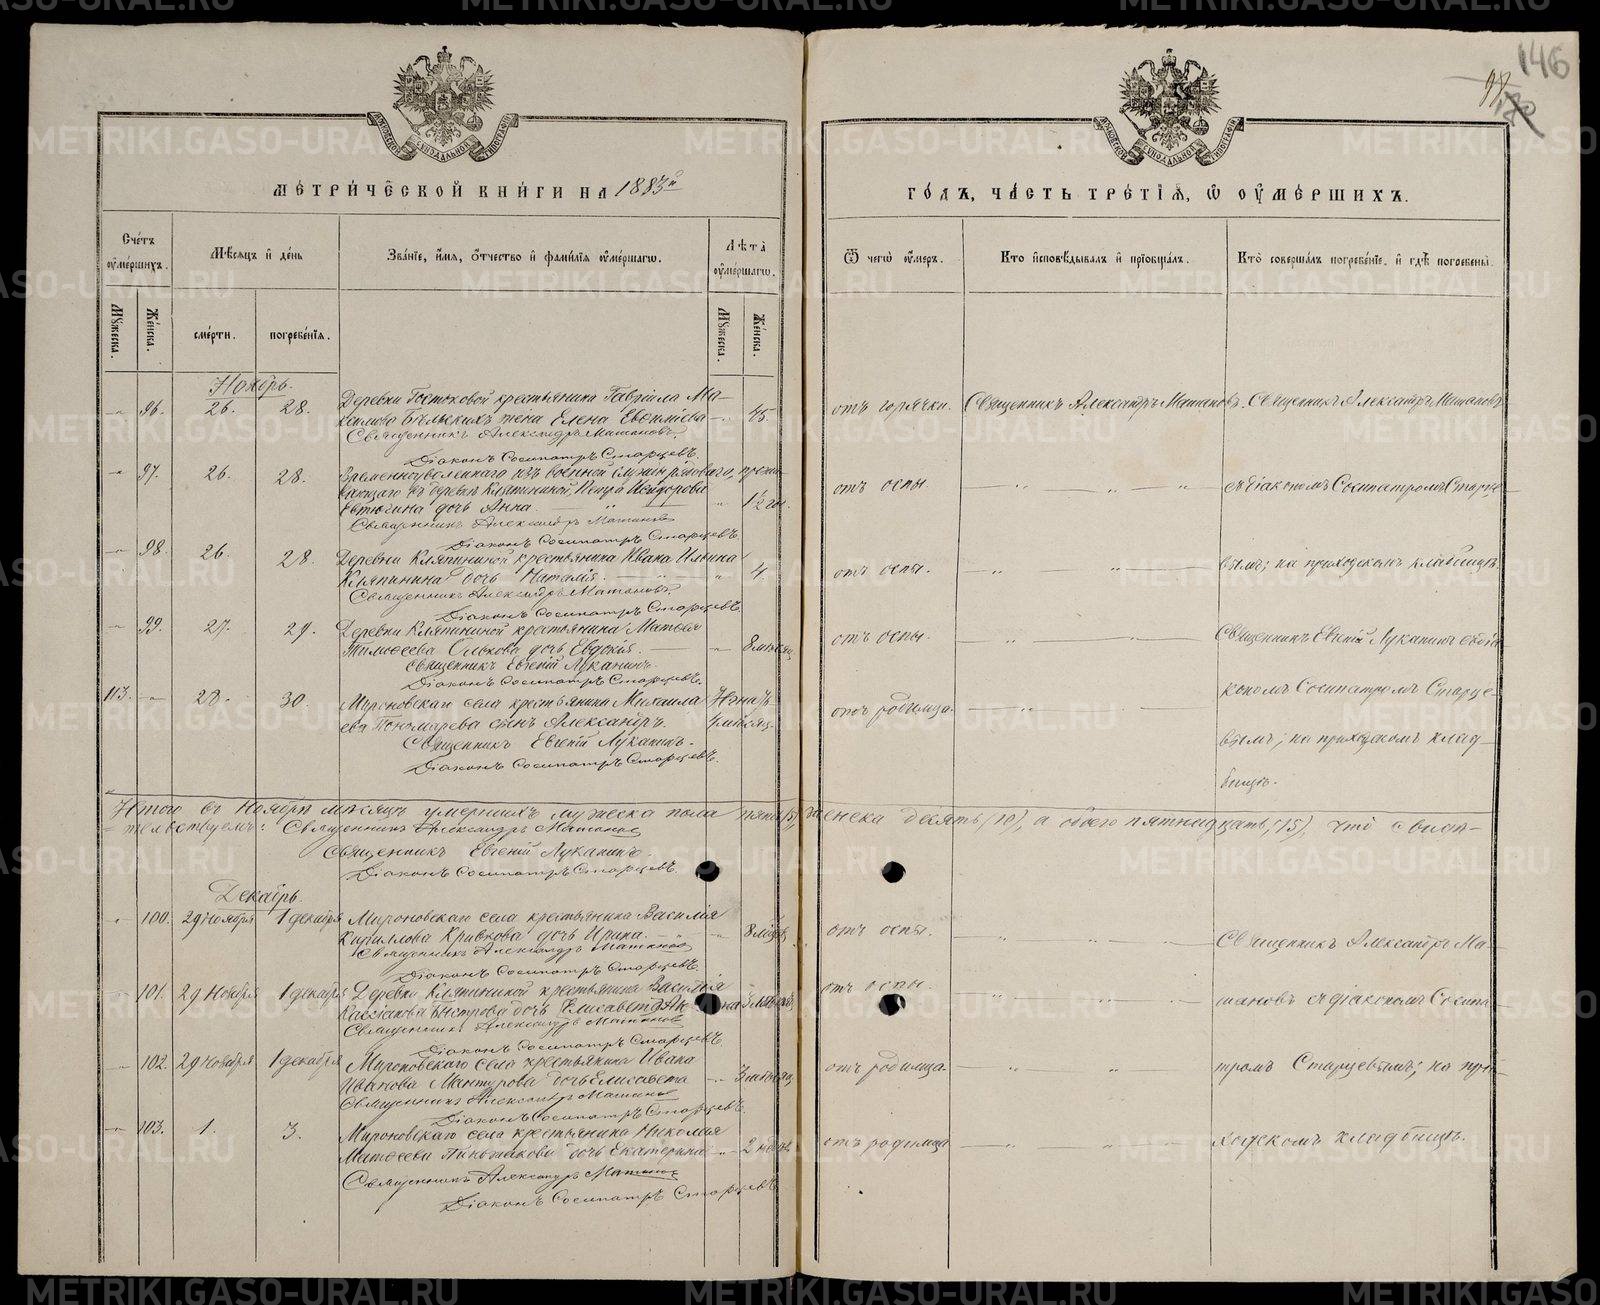 146
МЕТРИЧЕСКОЙ КНИГИ НА 1883й
ГОДЪ, ЧАСТЬ ТРЕТІЯ, Ѡ ОУМЕРШИХЪ.
МОСКОВСКОЙ СѴНОДАЛЬНОЙ ТИПОГРАФІИ
МОСКОВСКОЙ СѴНОДАЛЬНОЙ ТИПОГРАФІИ
Счетъ оумершихъ.
Мѣсяцъ и день
Званіе, имя, отчество и фамилія оумершагѡ.
Лѣта оумершагѡ.
Ѿ чегѡ оумеръ.
Кто исповѣдывалъ и пріобщалъ.
Кто совершалъ погребеніе, и гдѣ погребены.
Мужеска.
Женска.
смерти.
погребенія.
Мужеска.
Женска.
Ноябрь.
96. 26. 28. Деревни крестьянина Гавріила Ма-
ксимова Бѣльскихъ жена Елена Евѳиміева 45. отъ горячки. Священникъ Александръ Матановъ. Священникъ Александръ Матановъ
Священникъ Александръ Матановъ.
Діаконъ Сосипатръ Старцевъ.
97. 26. 28. Временноуволеннаго изъ военной службы рядоваго, прожи-
вающаго въ деревнѣ Кляпининой, Исидорова
Евтюгина дочь Анна. 1½ го. отъ оспы. съ діакономъ Сосипатромъ Старце-
Священникъ Александръ Матановъ
Діаконъ Сосипатръ Старцевъ.
98. 26. 28. Деревни Кляпининой крестьянина Ивана Ильина
Кляпинина дочь Наталія. 4. отъ оспы. вымъ; на приходскомъ кладбищѣ.
Священникъ Александръ Матановъ.
Діаконъ Сосипатръ Старцевъ.
99. 27. 29. Деревни Кляпининой крестьянина Матѳея
Тимоѳеева Ольхова дочь Евдокія. 8 мѣсяц. отъ оспы. Священникъ Евгеній Луканинъ съ діа-
Священникъ Евгеній Луканинъ.
Діаконъ Сосипатръ Старцевъ.
113. 28. 30. Мироновскаго села крестьянина Михаила
ева Пономарева сынъ Александръ. 4 мѣсяц. отъ родимца. кономъ Сосипатромъ Старце-
Священникъ Евгеній Луканинъ.
вымъ; на приходскомъ клад-
Діаконъ Сосипатръ Старцевъ.
бищѣ.
Итого въ Ноябрѣ мѣсяцѣ умершихъ мужеска пола пять (5), женска десять (10), а обоего пятнадцать (15), что свидѣ-
тельствуемъ: Священникъ Александръ Матановъ
Священникъ Евгеній Луканинъ.
Діаконъ Сосипатръ Старцевъ.
Декабрь.
100. 29 Ноября 1 декабря Мироновскаго села крестьянина Василія
Кириллова Кривкова дочь Ирина. 8 мѣсяц. отъ оспы. Священникъ Александръ Ма-
Священникъ Александръ Матановъ
Діаконъ Сосипатръ Старцевъ.
101. 29 Ноября 1 декабря Деревни Кляпининой крестьянина Василія
Кассіанова Быстрова дочь отъ оспы. тановъ съ діакономъ Сосипа-
Священникъ Александръ Матановъ
Діаконъ Сосипатръ Старцевъ.
102. 29 Ноября 1 декабря Мироновскаго села крестьянина Ивана
Иванова Мантурова дочь Елисавета 3 мѣсяц. отъ родимца. тромъ Старцевымъ; на при-
Священникъ Александръ Матановъ
Діаконъ Сосипатръ Старцевъ.
103. 1. 3. Мироновскаго села крестьянина Николая
Матѳеева дочь Екатерина 2 отъ родимца ходскомъ кладбищѣ.
Священникъ Александръ Матановъ
Діаконъ Сосипатръ Старцевъ.
METRIKI.GASO-URAL.RU